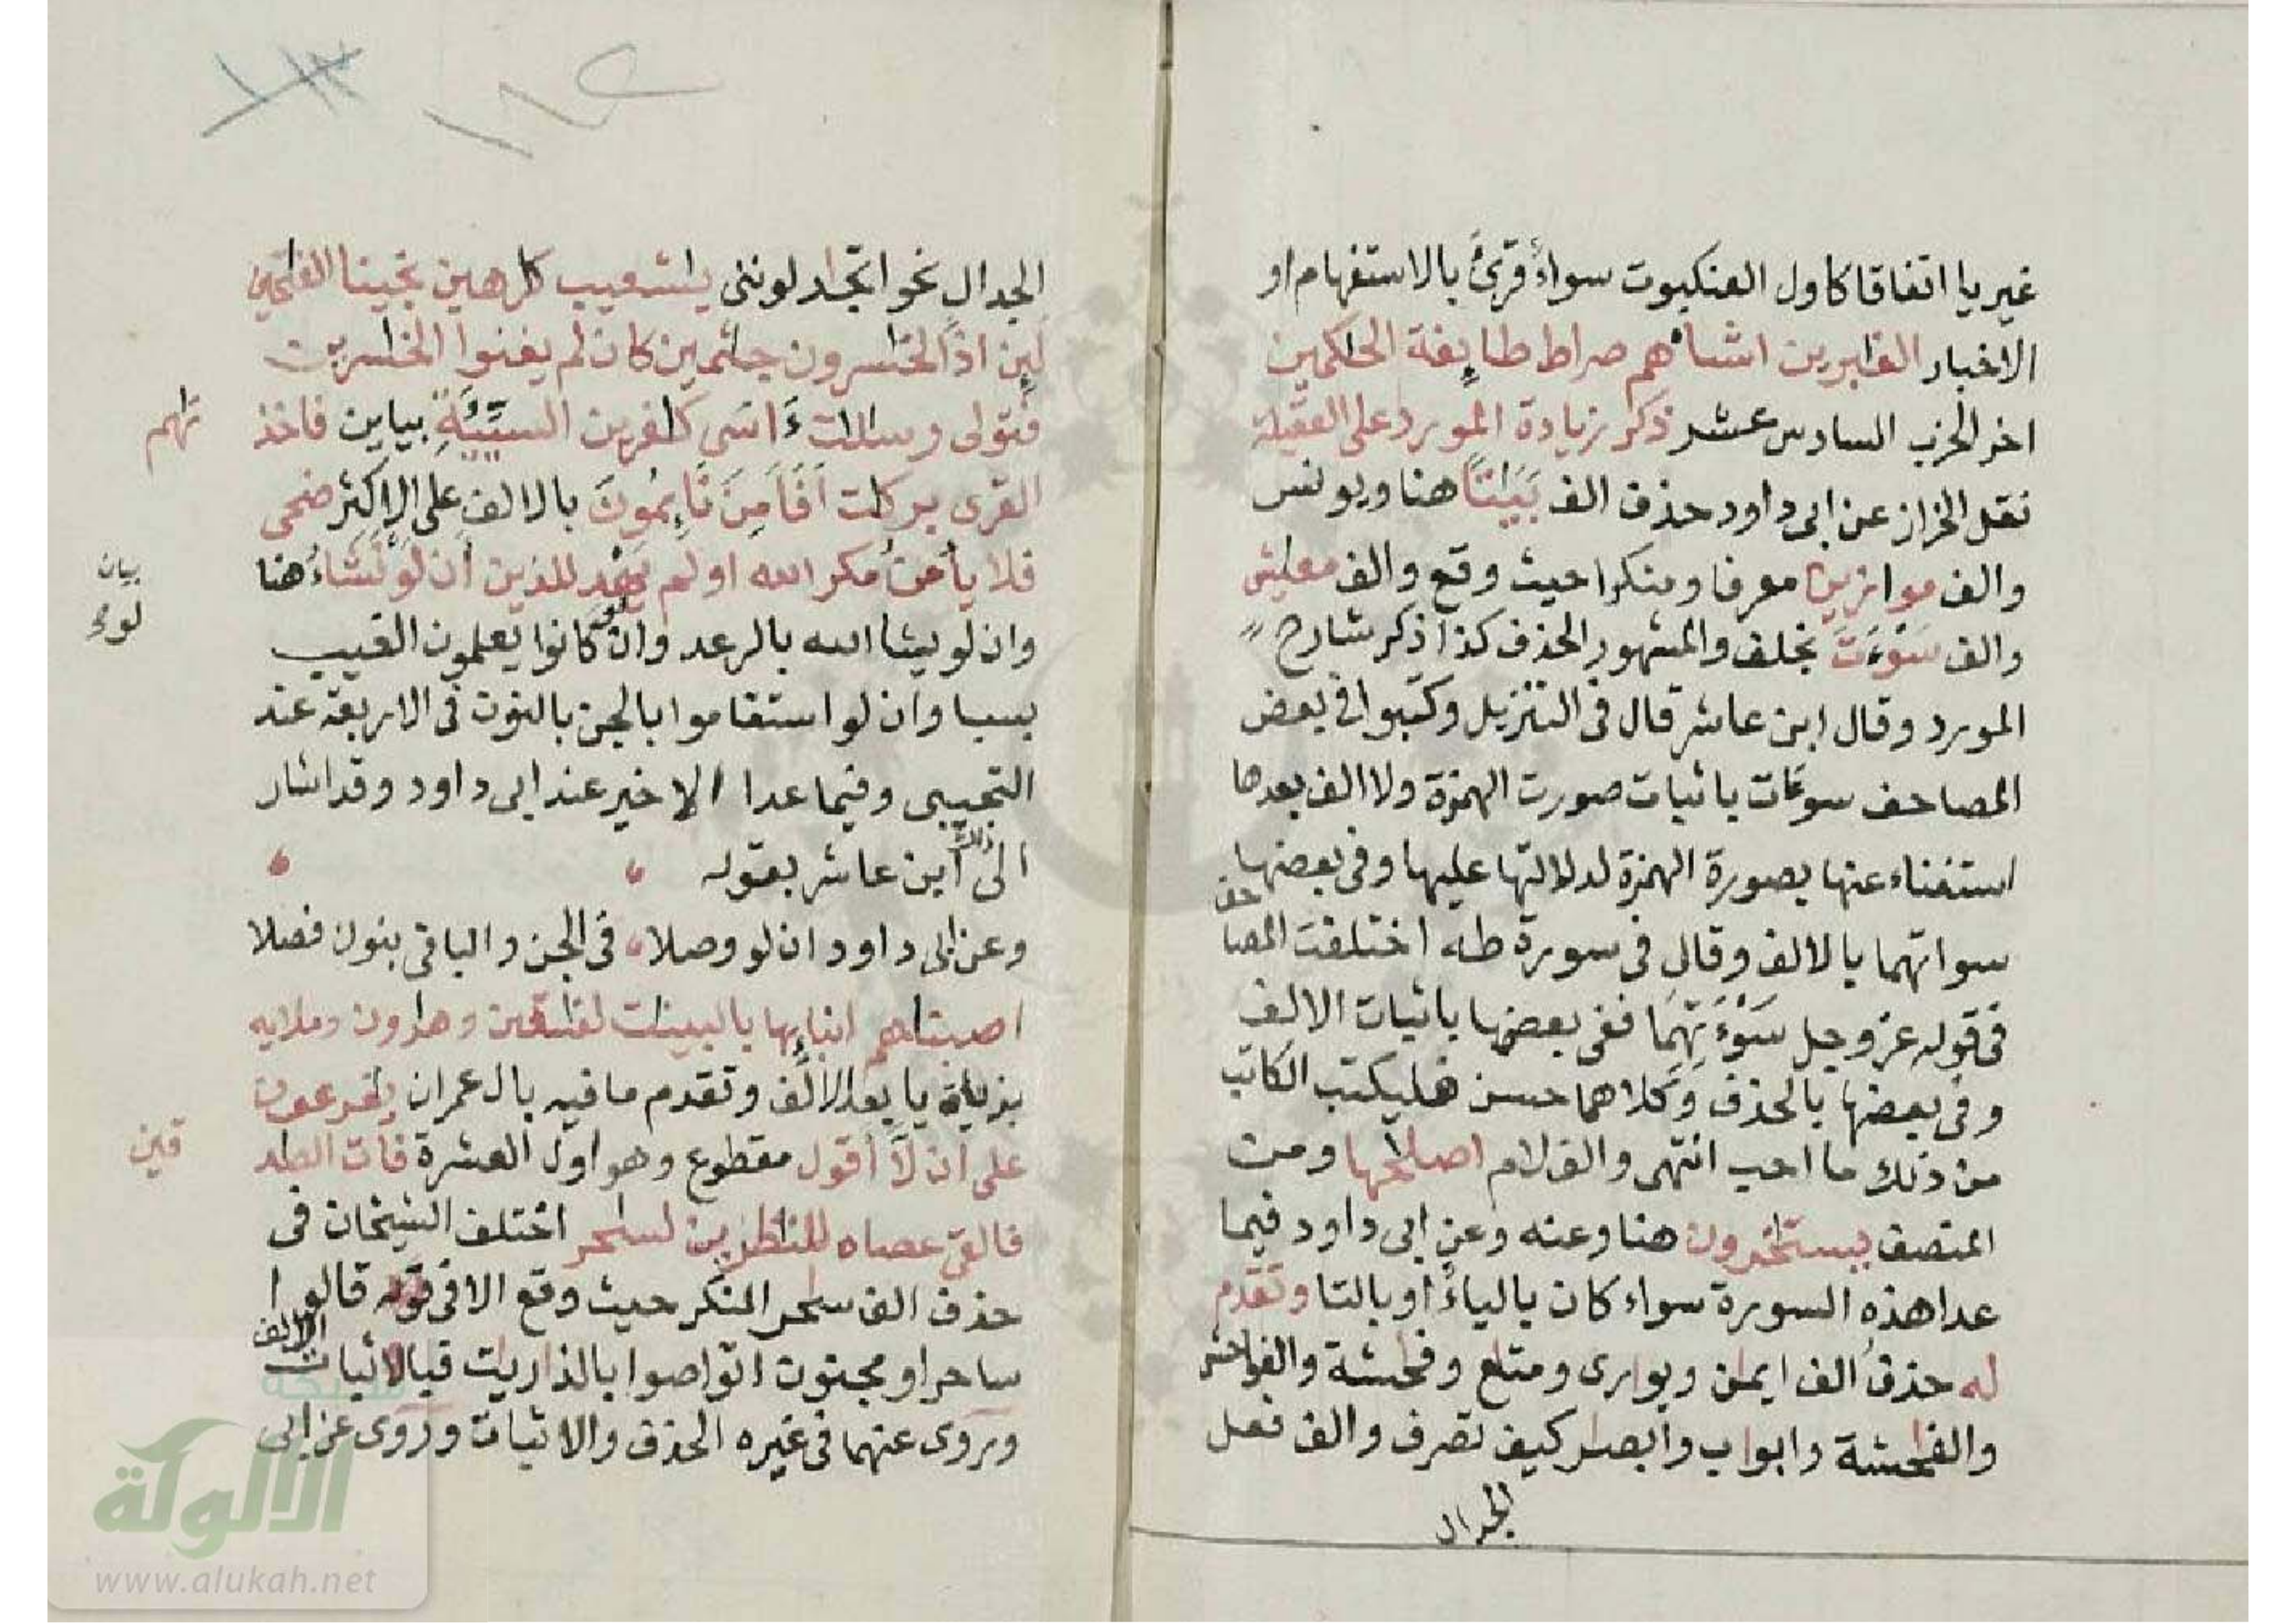 غير يا اتفاقا كاول العنكبوت سواءٌ قرئ بالاستفهام او
الاخبار الغابرين اشياءهم صراط طايفة الحاكمين
اخر الحزب السادس عشر ذكر زيادة المورد على العقيلة
نقل الخراز عن ابى داود حذف الف بَيَاتًا هنا ويونس
والف موازين معرفا ومنكرا حيث وقع والف معايش
والف سَوْءَت بخلف والمشهور الحذف كذا ذكر شارح
المورد وقال ابن عاشر قال فى التنزيل وكتبوا فى بعض
المصاحف سوءات باثبات صورت الهمزة ولا الف بعدها
استغناء عنها بصورة الهمزة لدلالتها عليها وفى بعضها
سواتهما بالالف وقال فى سورة طه اختلفت المصاحف
فى قوله عز وجل سَوْءَتهُمَا ففى بعضها باثبات الالف
وفى بعضها بالحذف وكلاهما حسن فليكتب الكاتب
من ذلك ما احب انتهى والف لام اصلاحها ومن
المنصف يستاخرون هنا وعنه وعن ابى داود فيما
عدا هذه السورة سواء كان بالياء او بالتا وتقدم
له حذف الف ايمان ويوارى ومتاع وفاحشة والفواحش
والفاحشة وابواب وابصار كيف تصرف والف فعل
الجدال
الجدال نحو اتجادلوننى ياشعيب كارهين نجينا الفاتحين
لين اذا لخاسرون جاثمين كان لم يغنوا الخاسرين
فتولى رسالات ءَاسَى كافرين السَّيِّئَةِ بياين فاخذ
نهم
القرى بركات اَفَاَمِنَ نَايِمُونَ بالالف على الاكثر ضحى
فلا يأمن مكر الله اولم يهد للذين أن لَوْ نَشَاءُ هنا
بيان
لونه
وان لو يشا الله بالرعد وان لو كانوا يعلمون الغيب
بسبا وان لو استقاموا بالجن بالنون فى الاربعة عند
التجيبى وفيما عدا الاخير عند ابى داود وقد اشار
الى ذلك ابن عاشر بقوله
وعن ابى داود ان لو وصلا فى الجن والباقى بنون فصلا
اصبناهم انبايها بالبينات لفاسقين وهارون وملايه
بزيادة يا بعد الالف وتقدم ما فيه بال عمران يفرعون
على أن لا أقول مقطوع وهو اول العشرة فات الطد
قين
فالقى عصاه للناظرين لساحر اختلف الشيخان فى
حذف الف ساحر المنكر حيث وقع الا فى قوله قالوا
ساحر او مجنون اتواصوا بالذاريات فبالاثبات الالف
وروى عنهما فى غيره الحذف والاثبات وروى عن ابى
شبكة
الألوكة
www.alukah.net